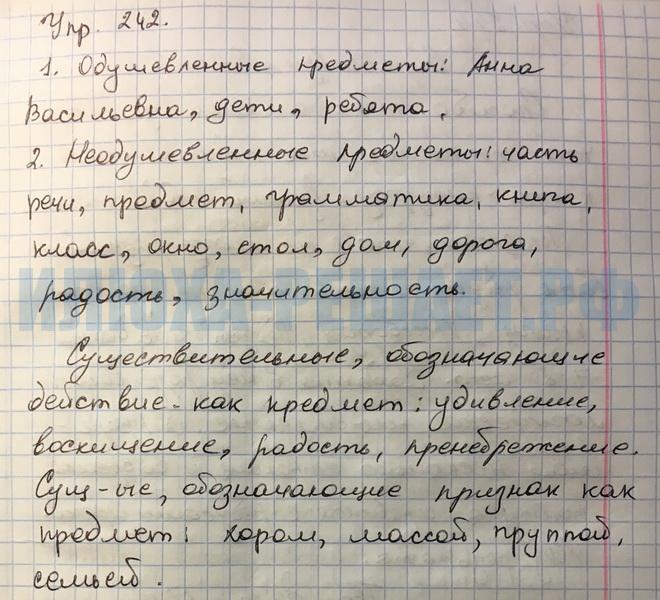 Упр. 242.
1. Одушевленные предметы: Анна
Васильевна, дети, ребята.
2. Неодушевленные предметы: часть
речи, предмет, грамматика, книга,
класс, окно, стол, дом, дорога,
радость, значительность.
ИЛЮХА-РЕШАЕТ.РФ
Существительные, обозначающие
действие - как предмет: удивление,
восхищение, радость, пренебрежение.
Сущ-ые, обозначающие признак как
предмет: хором, массой, группой,
семьей.